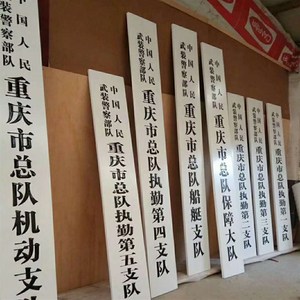 重庆市总队机动支队
中国人民
武装警察部队
重庆市总队执勤第五支队
中国人民
武装警察部队
重庆市总队执勤第四支队
中国人民
武装警察部队
重庆市总队船艇支队
中国人民
武装警察部队
重庆市总队保障大队
中国人民
武装警察部队
重庆市总队执勤第二支队
中国人民
武装警察部队
重庆市总队执勤第三支队
中国人民
武装警察部队
重庆市总队执勤第一支队